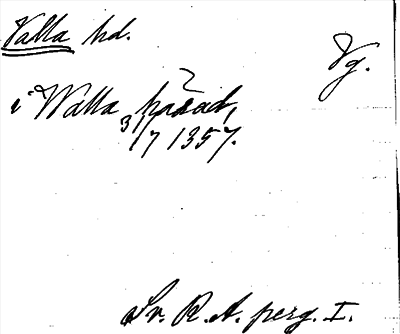 Valla hd.
Vg.
i Walla härad,
3/7 1357.
Sv. R. A. perg. I.